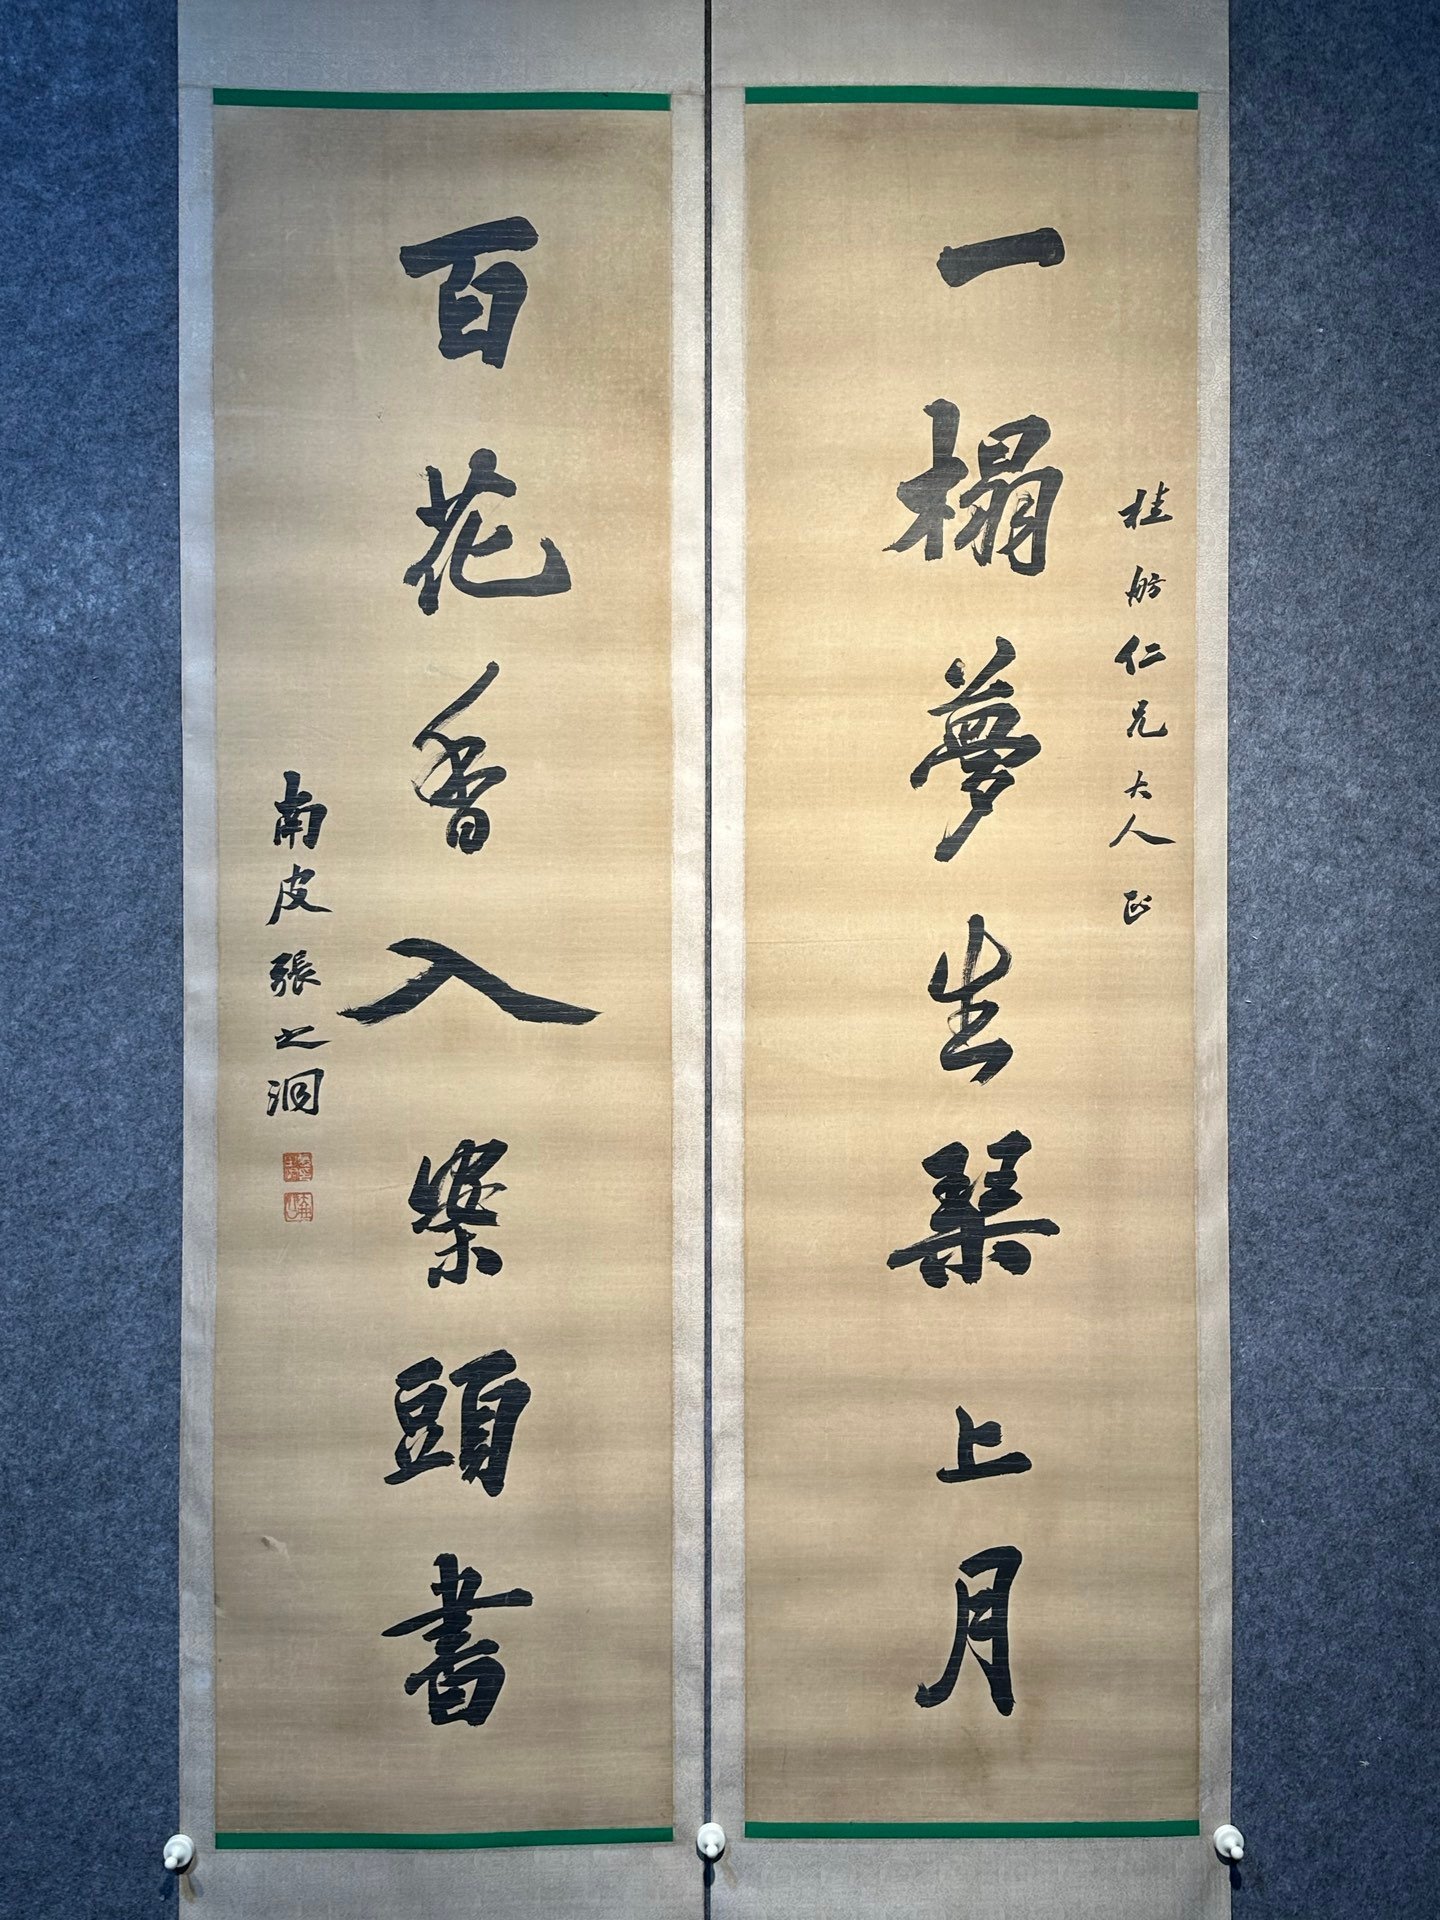 桂舫仁兄大人正
一榻夢生琴上月
百花香入案頭書
南皮張之洞